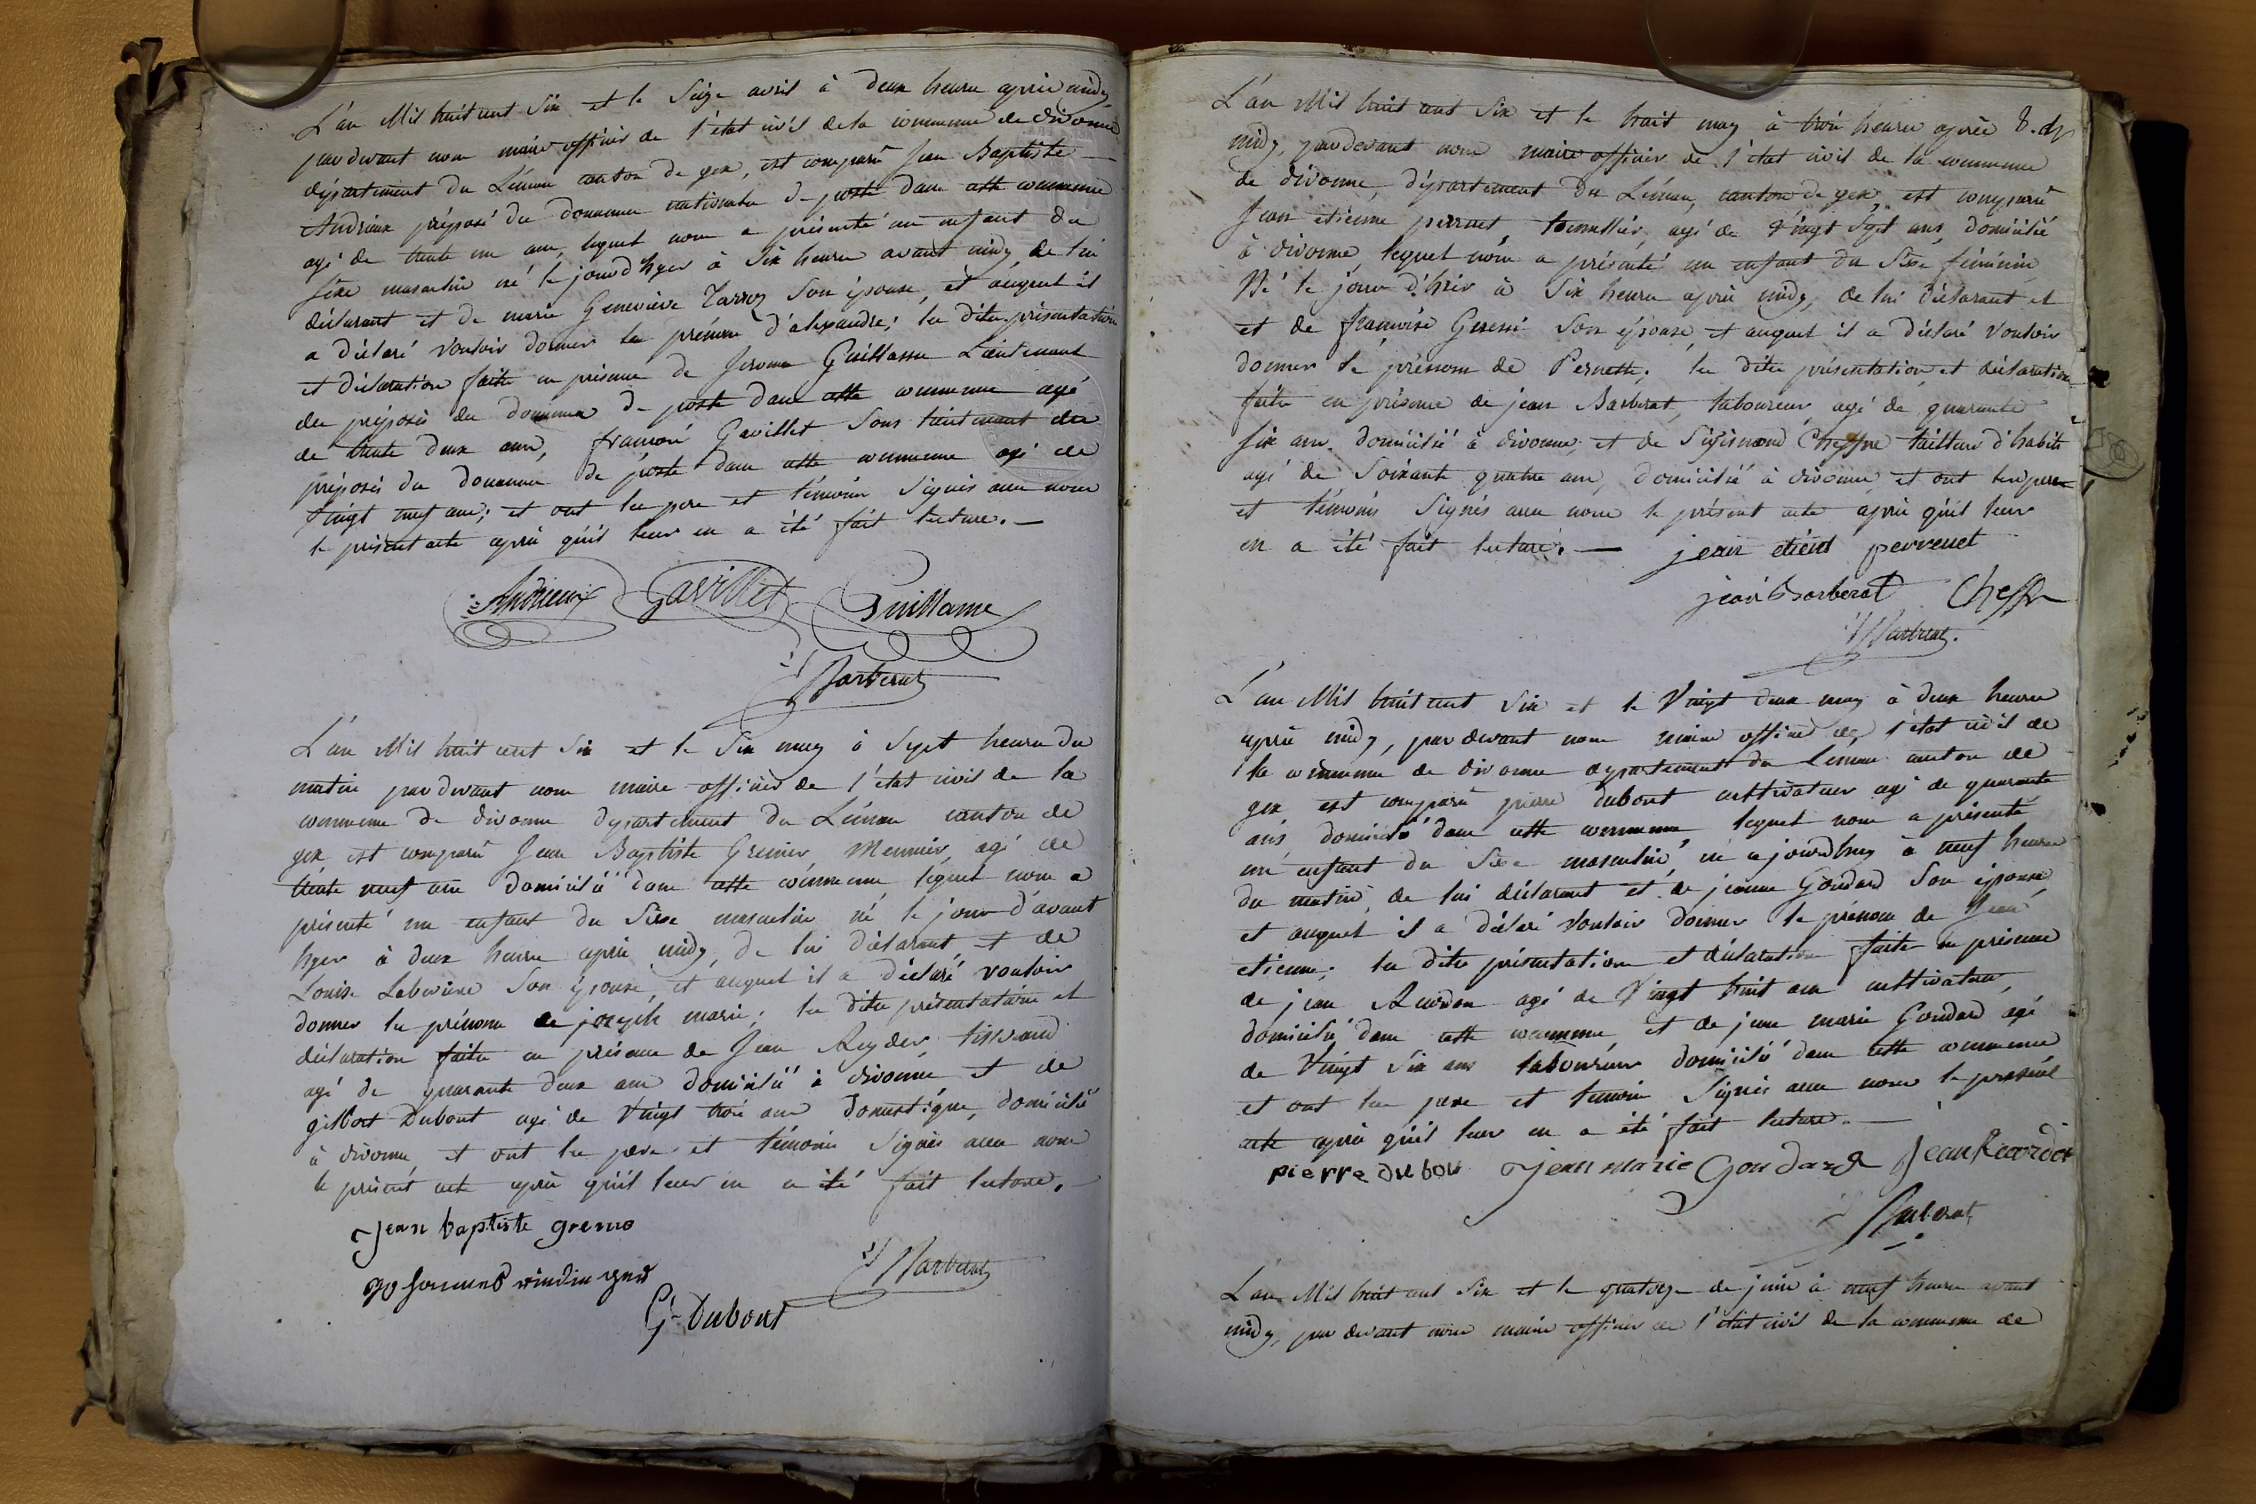 L'an Mil huit cent Six et le Seize avril à deux heure après midy
pardevant nous maire officier de l'état civil de la commune de divonne
département du Léman canton de gex, est comparû Jean Baptiste
Andrieux préposé des douannes nationales de poste dans cette commune
agé de trente un ans, lequel nous a présenté un enfant du
sexe masculin né le jourd'hyer à Six heures avant midy, de lui
déclarant et de marie Genevieve Son épouse, et auquel il
a déclaré vouloir donner le prénom d'alexandre; les dites présentation
et déclaration faite en présence de Jerome Guillasme Lieutenant
des préposés des douannes de poste dans cette commune agé
de trente deux ans, françois Gavillet Sous lieutenant des
préposés des douannes de poste dans cette commune agé de
Vingt neuf ans; et ont les pere et témoins Signés avec nous
le présent acte après qu'il leur en a été fait lecture. —
Andrieux Gavillet Guillame
Barberat
L'an Mil huit cent Six et le Six may à Sept heures du
matin pardevant nous maire officier de l'état civil de la
commune de divonne département du Léman canton de
gex est comparû Jean Baptiste Grenier, Meunier, agé de
trente neuf ans domicilié dans cette commune, lequel nous a
présenté un enfant du Sexe masculin né le jour d'avant
hyer à deux heures après midy, de lui déclarant et de
Louise Son épouse, et auquel il a déclaré vouloir
donner les prénoms de joseph marie; les dites présentation et
déclaration faites en présence de Jean Reyder tisserand
agé de quarante deux ans domicilié à divonne et de
gilbert Dubout agé de Vingt trois ans domestique, domicilié
à divonne et ont les pere et témoins Signés avec nous
le présent acte après qu'il leur en a été fait lecture. —
Jean baptiste grenie
Barberat
G. Dubout
L'an Mil huit cent Six et le huit may à trois heures après
midy, pardevant nous maire officier de l'état civil de la commune
de divonne, département du Léman, canton de gex, est comparû
Jean etienne perrnet, tonnellier, agé de Vingt Sept ans, domicilié
à divonne, lequel nous a présenté un enfant du Sexe féminin
Né le jour d'hier à Six heures après midy, de lui déclarant et
et de françoise Son épouse, et auquel il a déclaré vouloir
donner le prénom de Pernette; les dites présentation et déclaration
faite en présence de jean Barberat, laboureur, agé de quarante
Six ans, domicilié à divonne, et de Sigismond Cheffre tailleur d'habits
agé de Soixante quatre ans, domicilié à divonne, et ont les pere
et témoins Signés avec nous le présent acte après qu'il leur
en a été fait lecture. — jean etiene perrenet
jean Barberat Cheffre
Barberat
L'an Mil huit cent Six et le Vingt deux may à deux heures
après midy, pardevant nous maire officier de l'état civil de
la commune de divonne département du Léman canton de
gex est comparû pierre dubout cultivateur agé de quarante
ans, domicilié dans cette commune lequel nous a présenté
un enfant du Sexe masculin, né aujourdhuy à neuf heures
du matin, de lui déclarant et de jeanne Goudard Son épouse
et auquel il a déclaré vouloir donner le prénom de Jean
etienne; les dites présentation et déclaration faite en présence
de jean Reardon agé de Vingt huit ans cultivateur,
domicilié dans cette commune et de jean marie Goudard agé
de Vingt Six ans laboureur domicilié dans cette commune
et ont les pere et temoins Signés avec nous le présent
acte après qu'il leur en a été fait lecture. —
pierre dubou jean marie Goudard Jean Reardon
Barberat
L'an Mil huit cent Six et le quatorze de juin à neuf heures avant
midy, par devant nous maire officier de l'état civil de la commune de